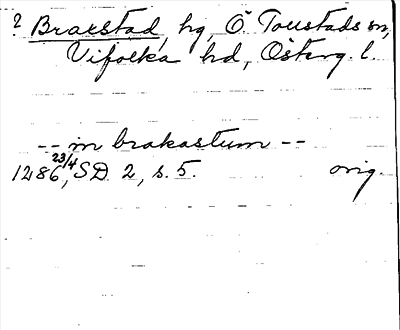 ? Braxstad, hg, Ö. Toustads sn,
Vifolka hd, Österg. l.
-- in brakastum --
1286 23/4, SD 2, s. 5. orig.